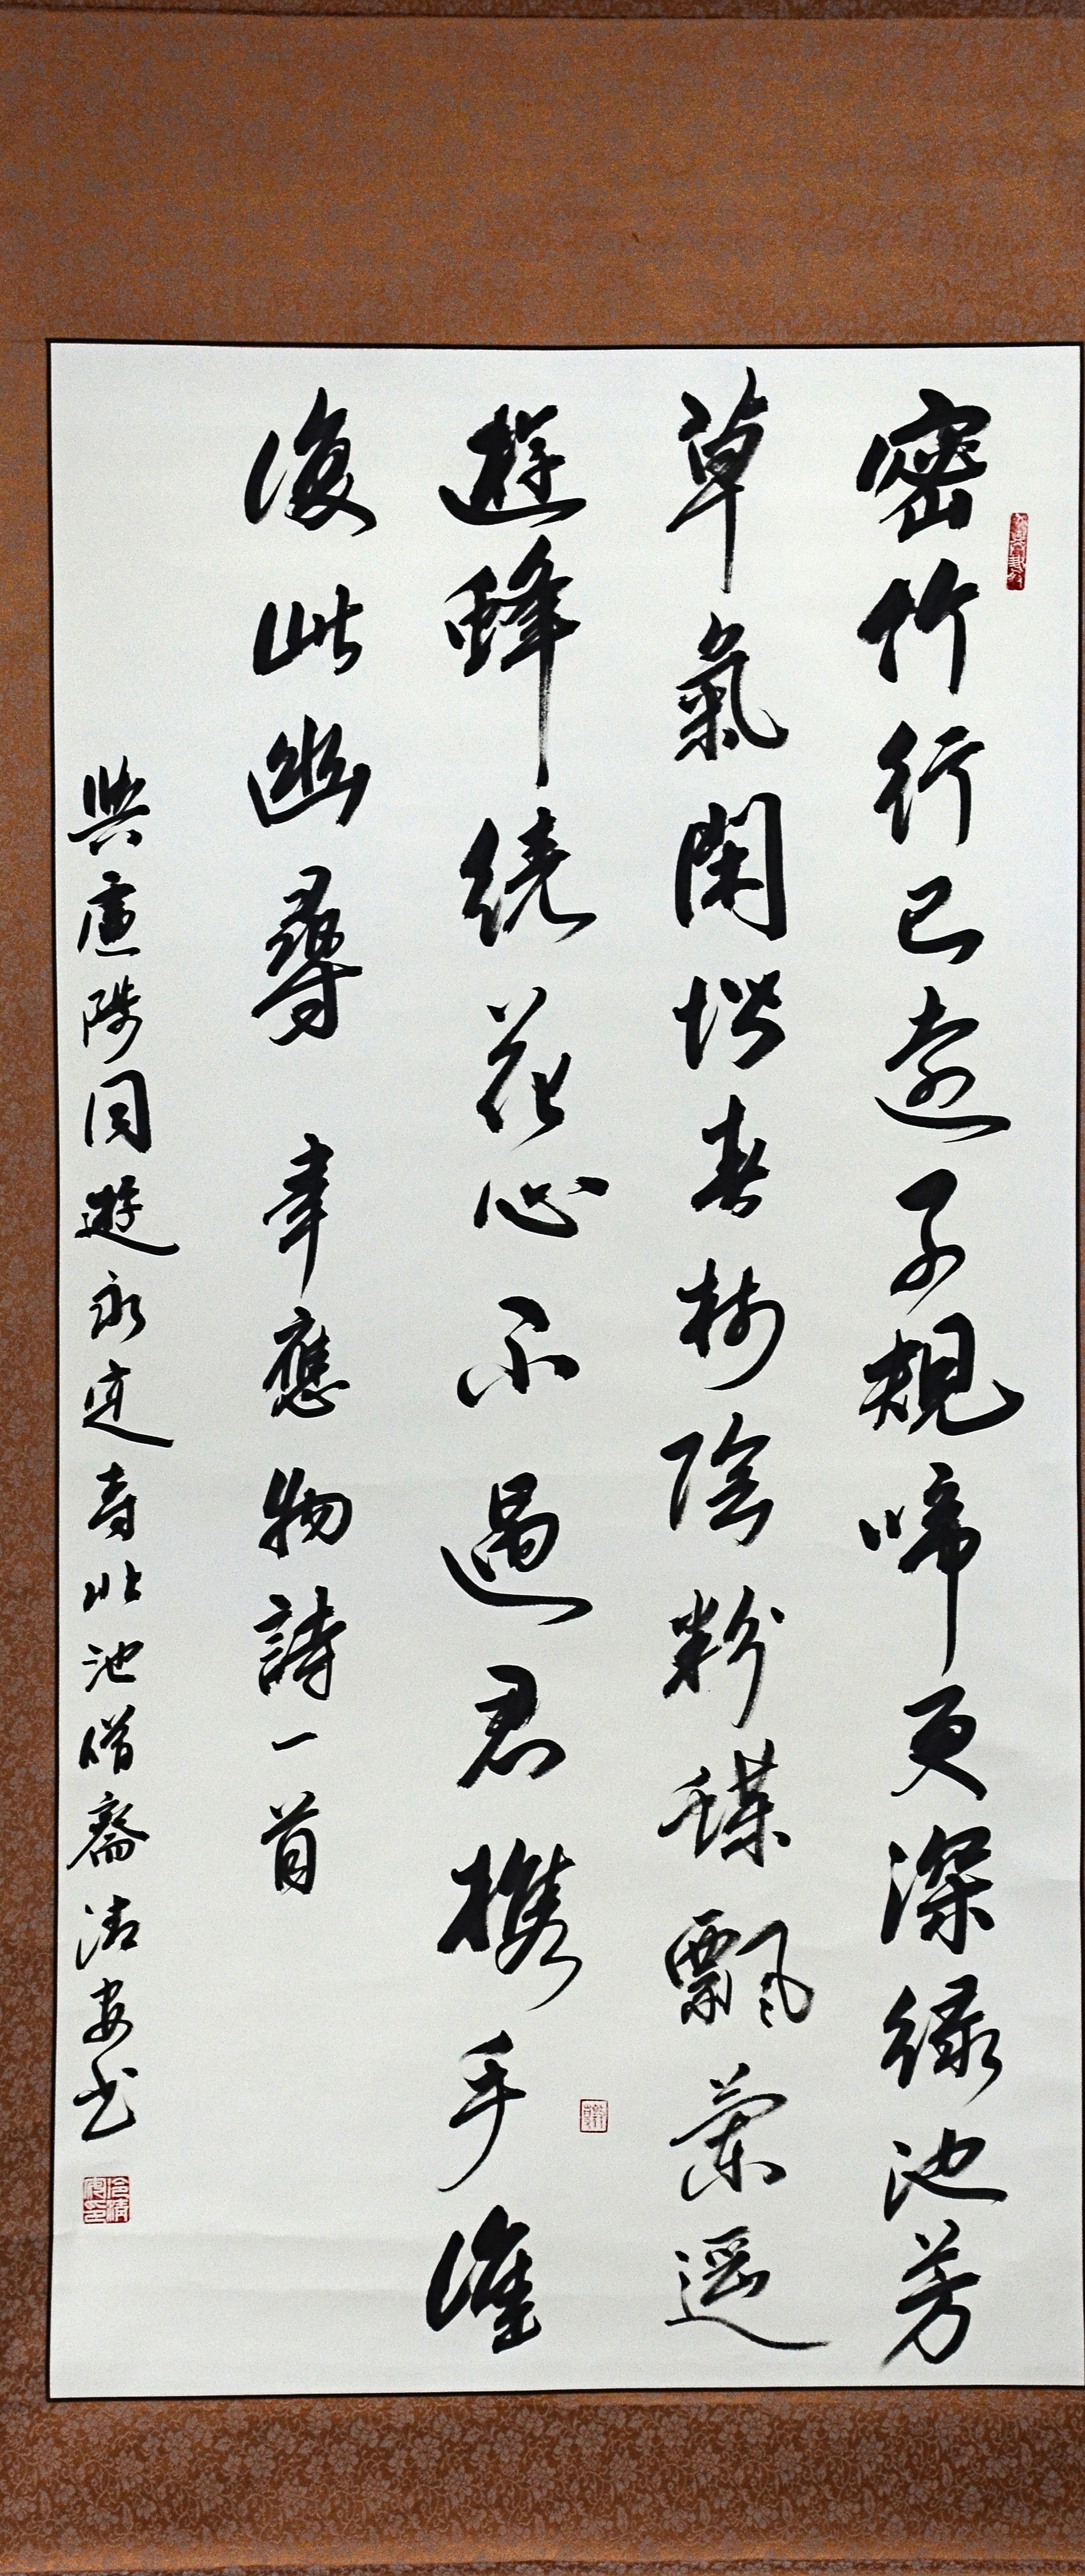 密竹行已遠子規啼更深緑池芳
草氣閑堦春樹陰粉蝶飄蘭遥
遊蜂繞花心不遇君携手誰
復此幽尋 韋應物詩一首
與盧陟同遊永定寺北池僧齋 清安书